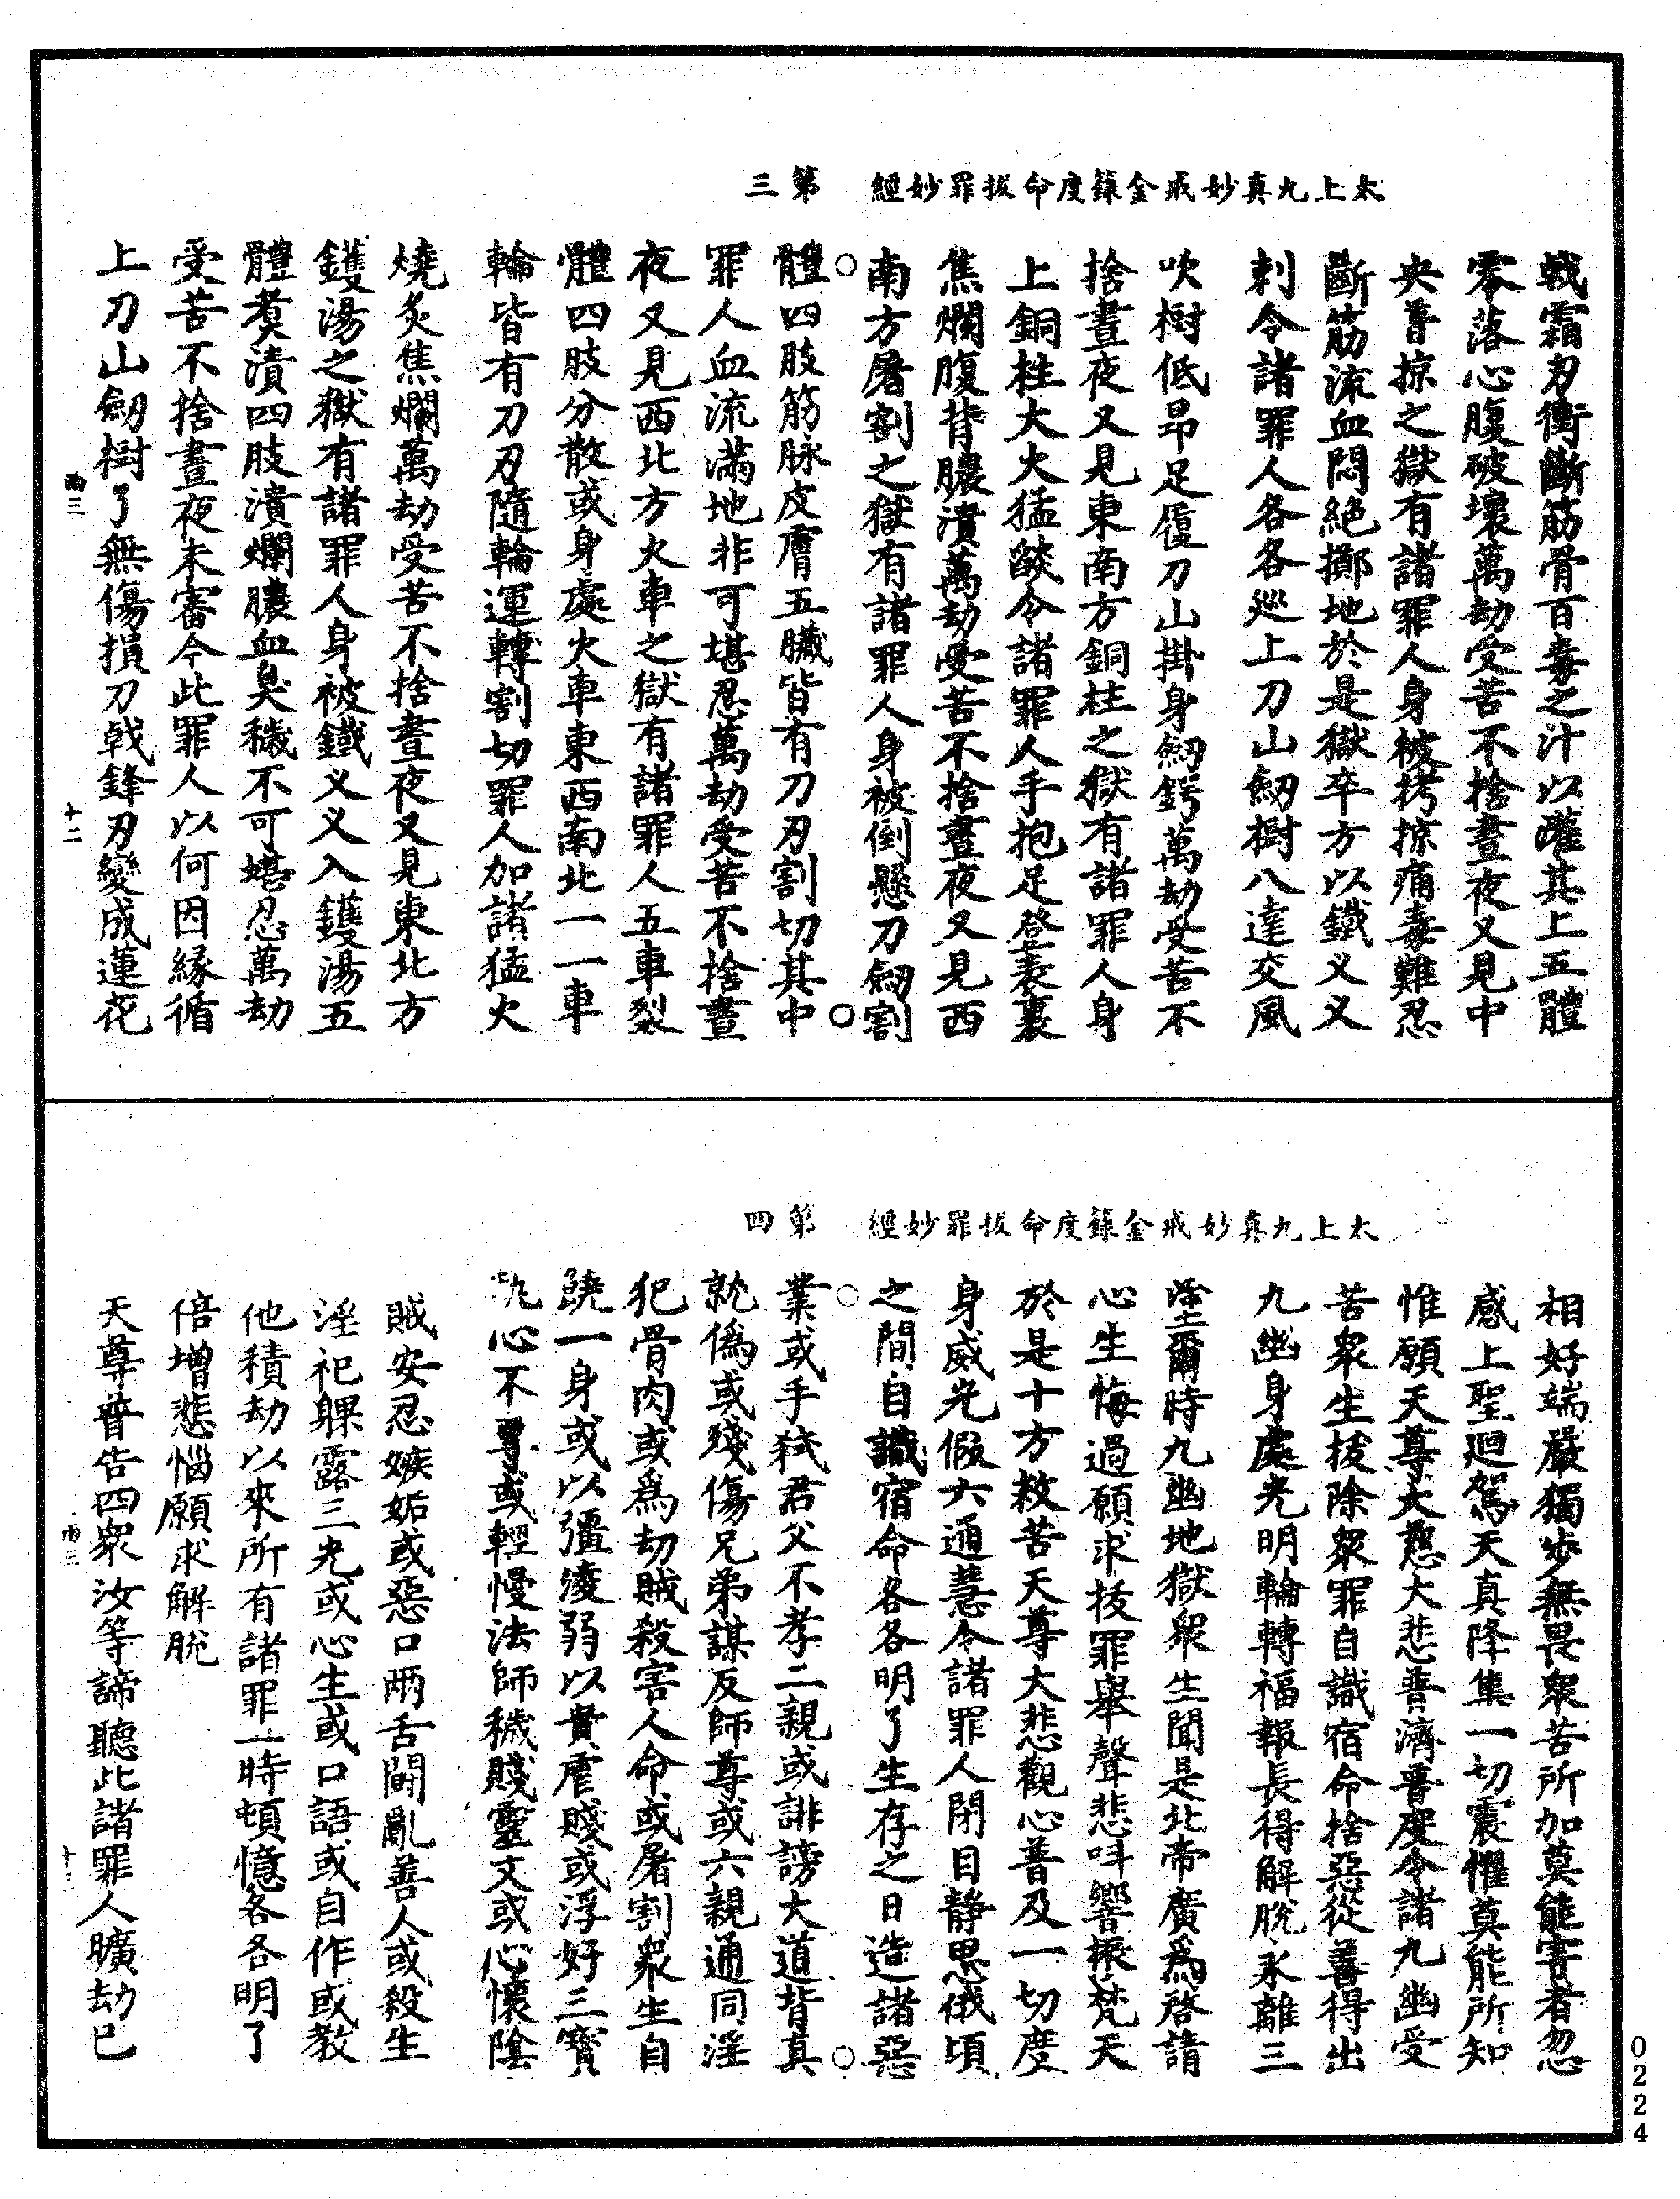 太上九真妙戒金籙度命拔罪妙經　第三
戟霜刃衝斷筋骨百毒之汁以灌其上五體
零落心腹破壞萬劫受苦不捨晝夜又見中
央普掠之獄有諸罪人身被拷掠痛毒難忍
斷筋流血悶絕擲地於是獄卒方以鐵义义
刺令諸罪人各各巡上刀山劒樹八達交風
吹樹低昂足履刀山掛身劒鍔萬劫受苦不
捨晝夜又見東南方銅柱之獄有諸罪人身
上銅柱大火猛燄令諸罪人手抱足登表裏
焦爛腹背膿潰萬劫受苦不捨晝夜又見西
南方屠割之獄有諸罪人身被倒懸刀劒割
體四肢筋脉皮膚五臟皆有刀刃割切其中
罪人血流滿地非可堪忍萬劫受苦不捨晝
夜又見西北方火車之獄有諸罪人五車裂
體四肢分散或身處火車東西南北一一車
輪皆有刀刃隨輪運轉割切罪人加諸猛火
燒炙焦爛萬劫受苦不捨晝夜又見東北方
鑊湯之獄有諸罪人身被鐵义义入鑊湯五
體煑漬四肢潰爛膿血臭穢不可堪忍萬劫
受苦不捨晝夜未審今此罪人以何因緣循
上刀山劒樹了無傷損刀戟鋒刃變成蓮花
雨三　十二
太上九真妙戒金籙度命拔罪妙經　第四
相好端嚴獨步無畏衆苦所加莫能害者忽
感上聖迴駕天真降集一切震懼莫能所知
惟願天尊大慈大悲普濟普度令諸九幽受
苦衆生拔除衆罪自識宿命捨惡從善得出
九幽身處光明輪轉福報長得解脫永離三
塗爾時九幽地獄衆生聞是北帝廣爲啓請
心生悔過願求拔罪舉聲悲呌響振梵天
於是十方救苦天尊大悲觀心普及一切度
身威光假六通慧令諸罪人閉目靜思俄頃
之間自識宿命各各明了生存之日造諸惡
業或手弒君父不孝二親或誹謗大道背真
就僞或殘傷兄弟謀反師尊或六親通同淫
犯骨肉或爲劫賊殺害人命或屠割衆生自
饒一身或以彊淩弱以貴虐賤或浮好三寶
九心不尋或輕慢法師穢賤靈文或心懷陰
賊安忍嫉妬或惡口兩舌鬪亂善人或殺生
淫祀躶露三光或心生或口語或自作或教
他積劫以來所有諸罪一時頓憶各各明了
倍增悲惱願求解脫
天尊普告四衆汝等諦聽此諸罪人曠劫已
雨三　十三
0224